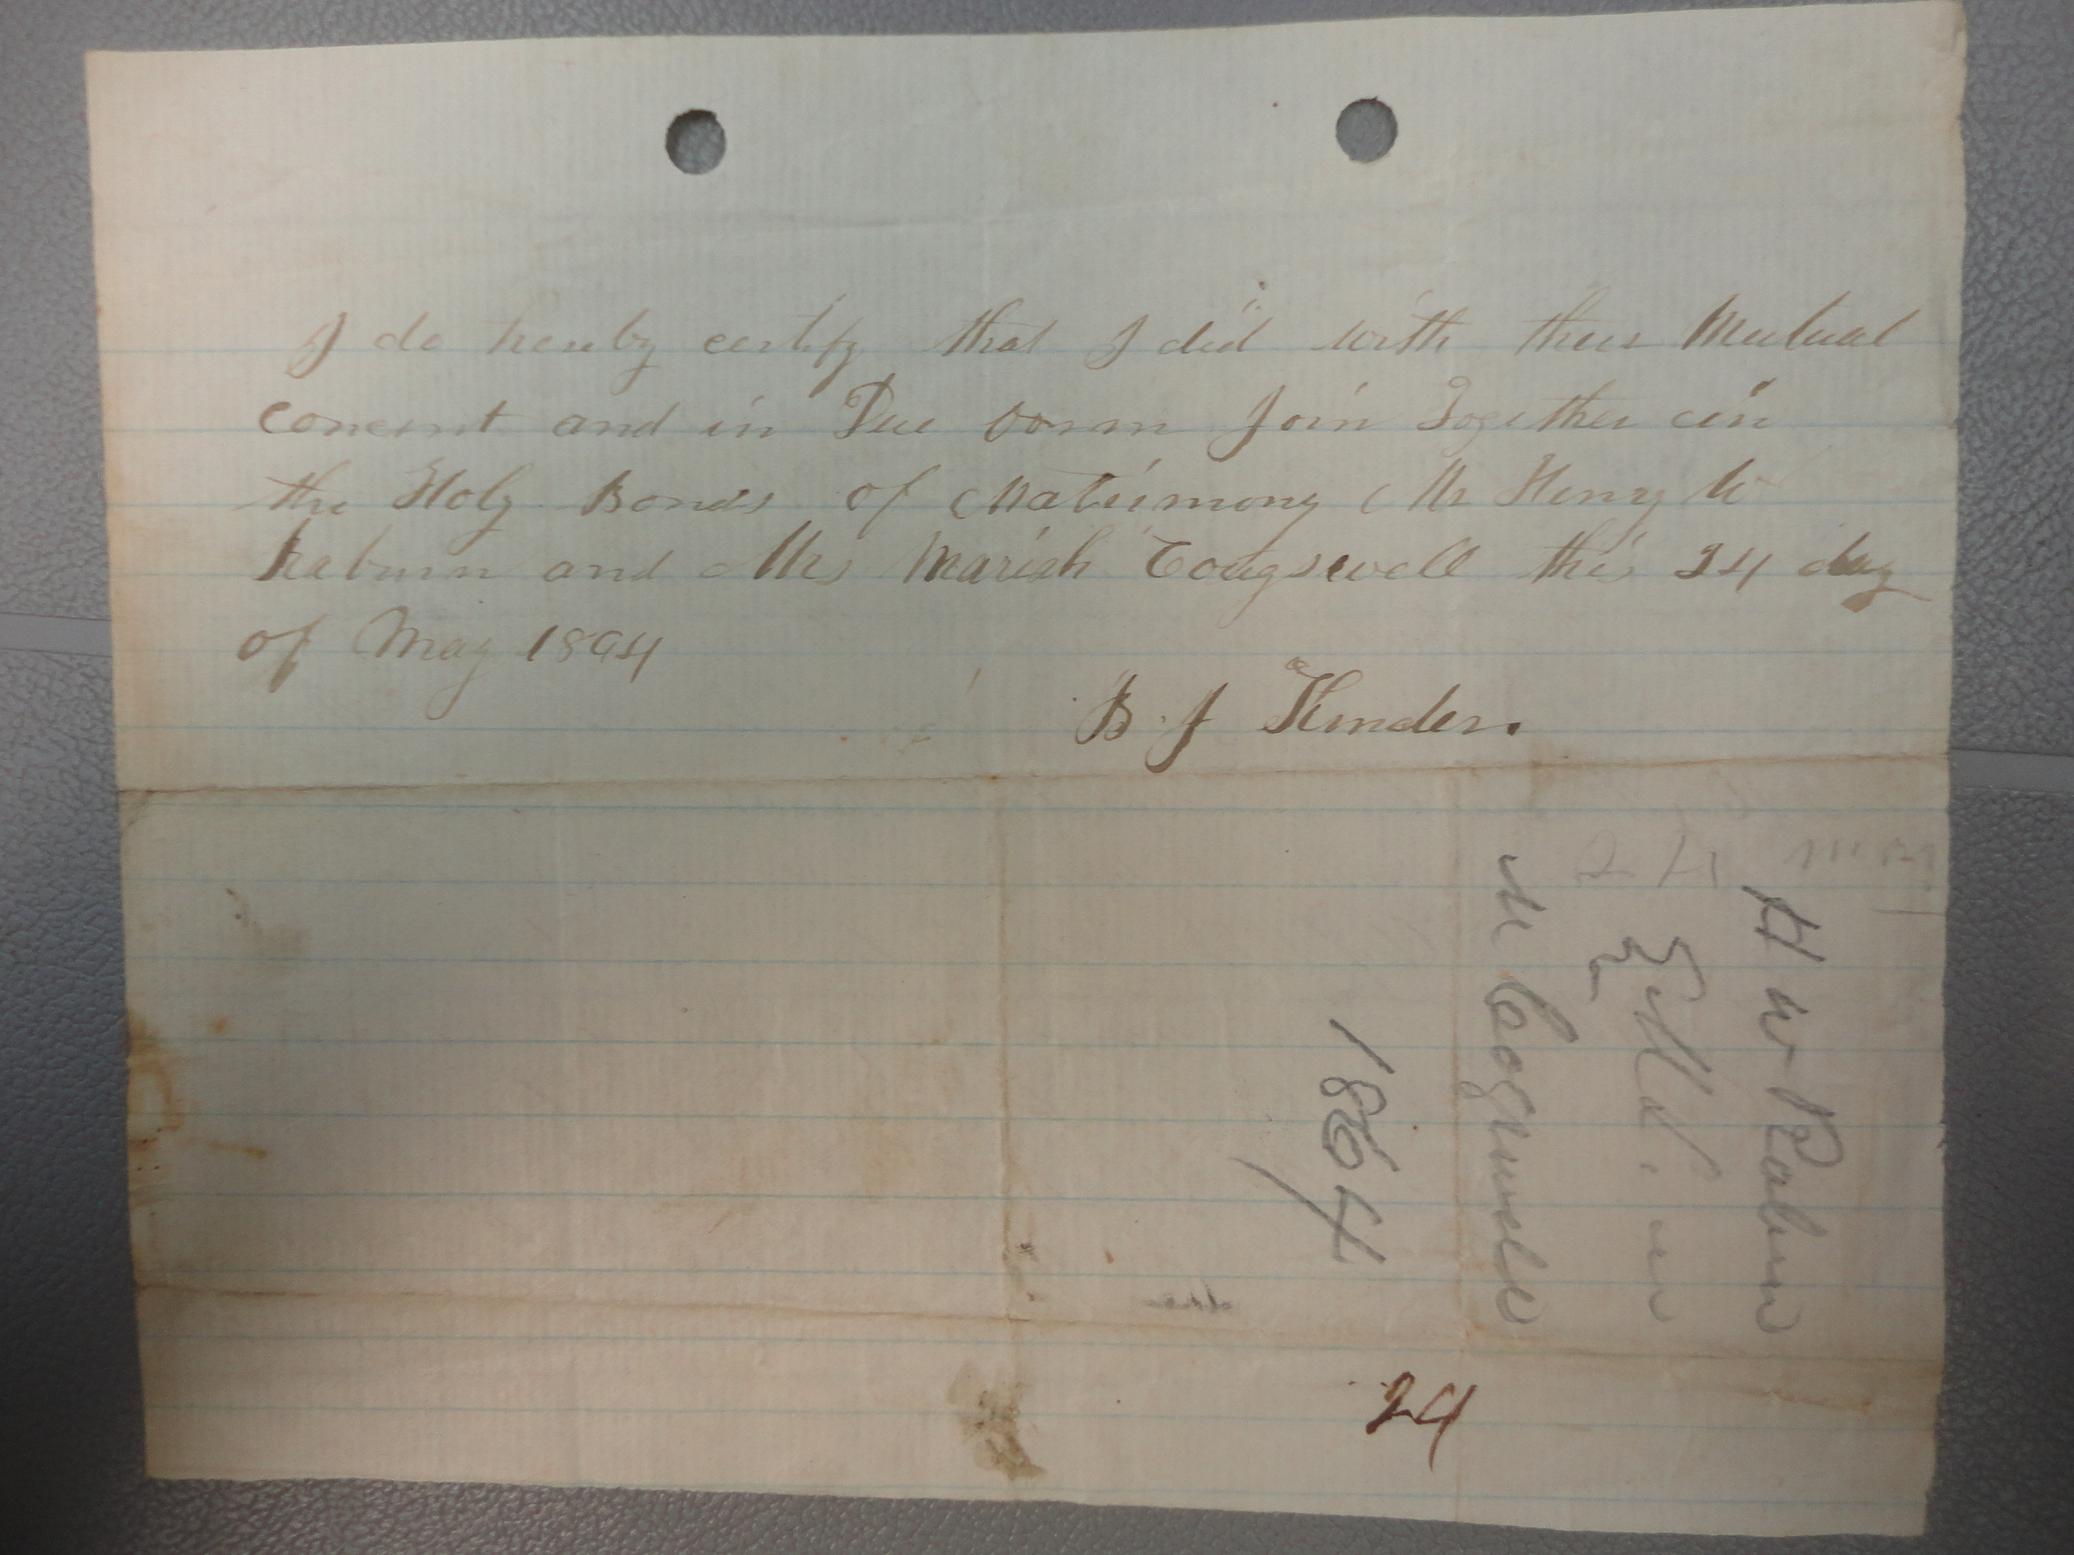 I do hereby certify that I did with their Mutual
concent and in Due form Join Together in
the Holy Bonds of Matrimony Mr Henry W
Raburn and Mrs Mariah Cougswell this 24 day
of May 1864
B. J Kinder.
24 May
H W Raburn
M Cogswell
1864
24